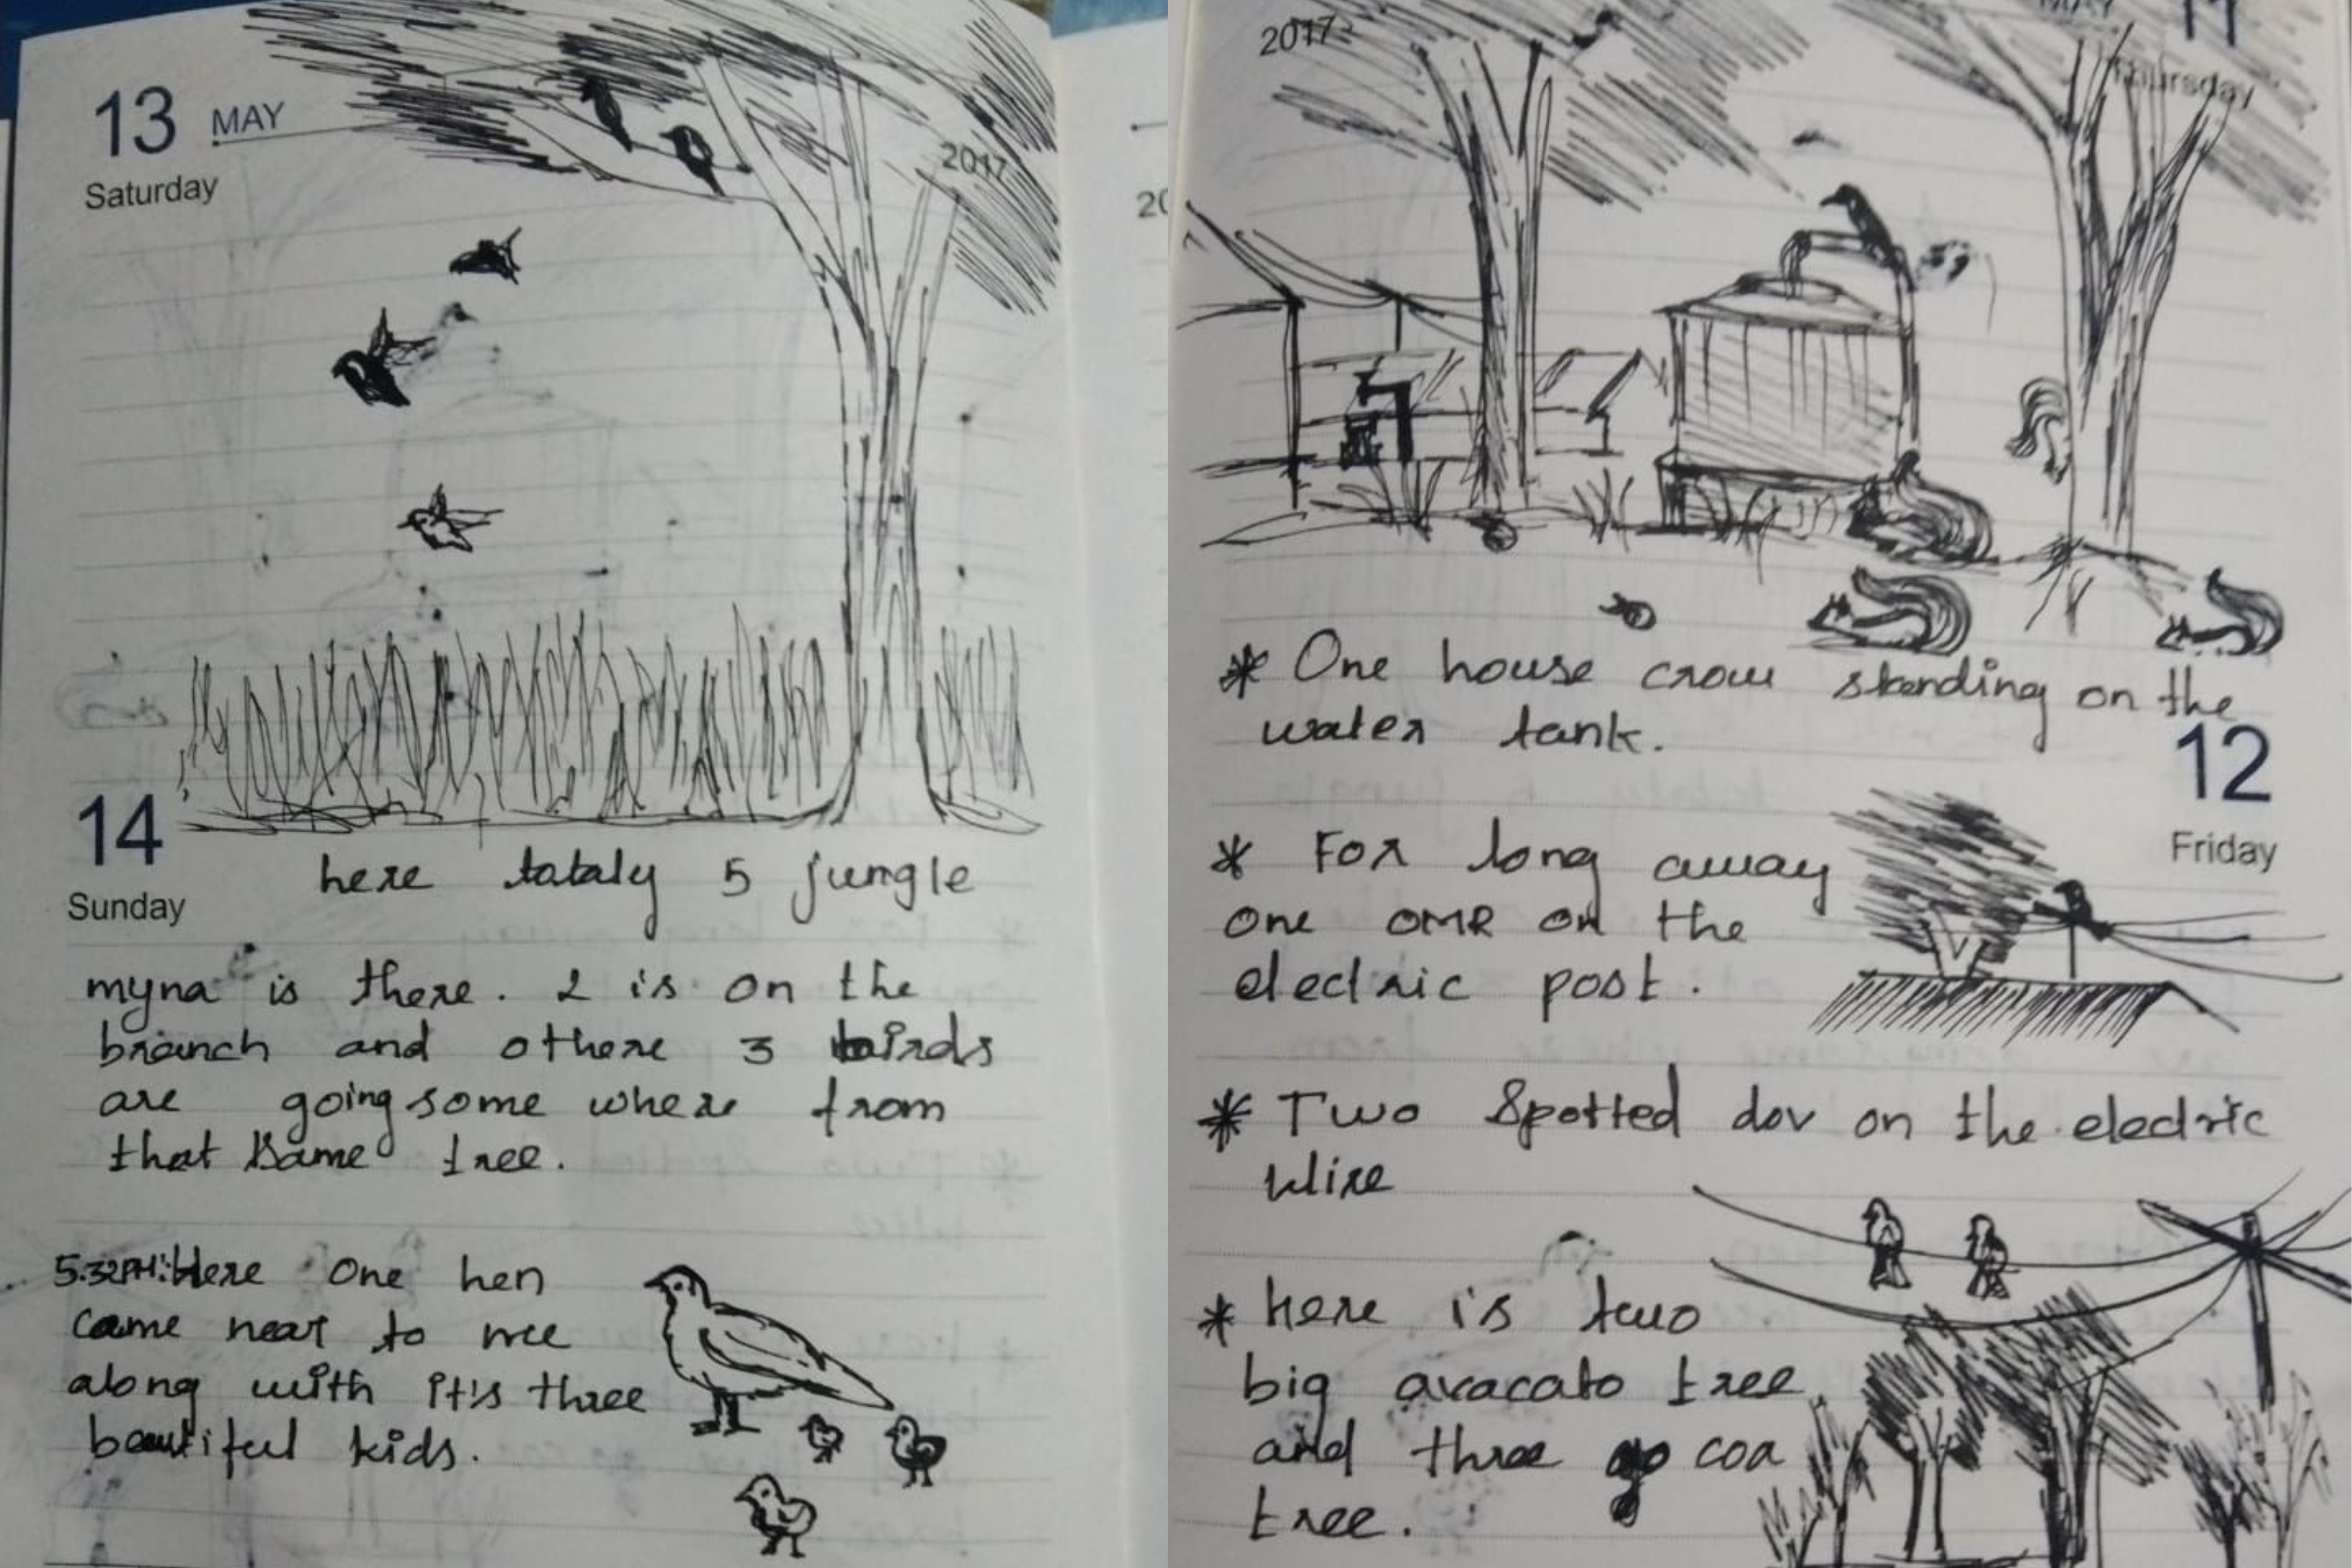 13 MAY
Saturday
2017
14
Sunday
here totaly 5 jungle
myna is there. 2 is on the
branch and othere 3 birds
are going some where from
that same tree.
5:32PM: Here One hen
came near to me
along with it's three
beautiful kids.
2017
11
Thursday
* One house crow standing on the
water tank.
12
Friday
* For long away
one OMR on the
electric post.
* Two Spotted dov on the electric
wire
* here is two
big avacato tree
and three coa
tree.